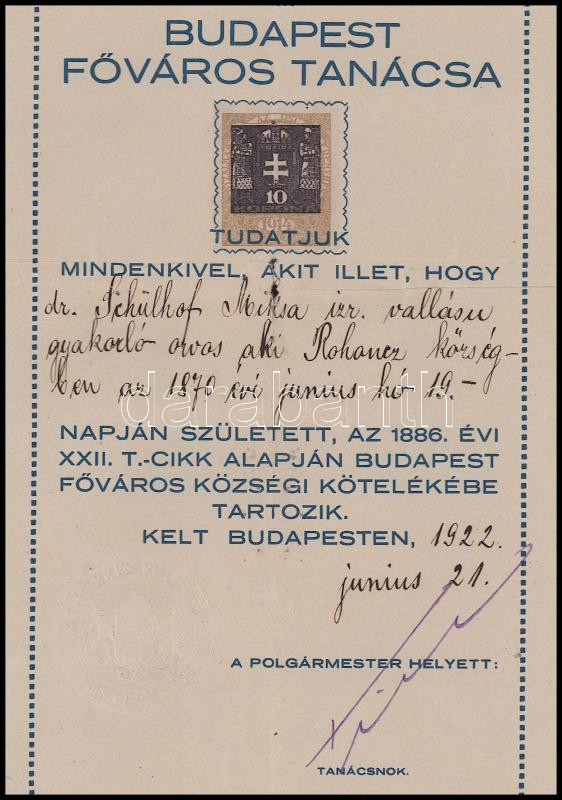 BUDAPEST
FŐVÁROS TANÁCSA
10
KORONA
1914
TUDATJUK
MINDENKIVEL, AKIT ILLET, HOGY
dr. Schülhof Miksa izr. vallásu
gyakorló orvos aki Rohoncz község-
ben az 1870 évi junius hó 19.-
darabanth
NAPJÁN SZÜLETETT, AZ 1886. ÉVI
XXII. T.-CIKK ALAPJÁN BUDAPEST
FŐVÁROS KÖZSÉGI KÖTELÉKÉBE
TARTOZIK.
KELT BUDAPESTEN, 1922.
junius 21.
A POLGÁRMESTER HELYETT:
TANÁCSNOK.